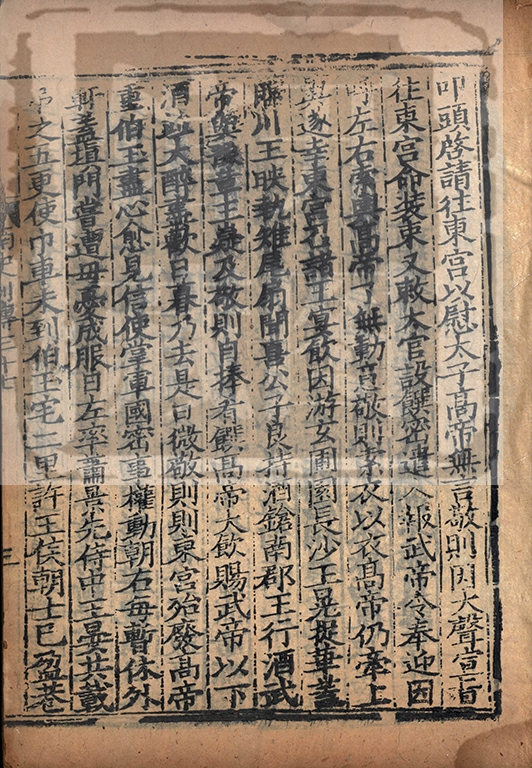 叩頭啓請往東宮以慰太子高帝無言敬則因大聲宣旨
往東宮命裝束又敕太官設饌密遣人報武帝令奉迎因
呼左右索輿高帝了無動意敬則索衣以衣高帝仍牽上
輿遂幸東宮召諸王宴飲因游玄圃園長沙王晃捉華蓋
臨川王映執雉尾扇聞喜公子良持酒鎗南郡王行酒武
帝與豫章王嶷及敬則自捧肴饌高帝大飲賜武帝以下
酒並大醉盡歡日暮乃去是日微敬則則東宮殆廢高帝
重伯玉盡心愈見信使掌軍國密事權動朝右每暫休外
軒蓋填門嘗遭母憂成服日左率蕭景先侍中王晏共載
弔之五更便巾車未到伯玉宅二里許王侯朝士已盈巷
南史列傳三十七
三